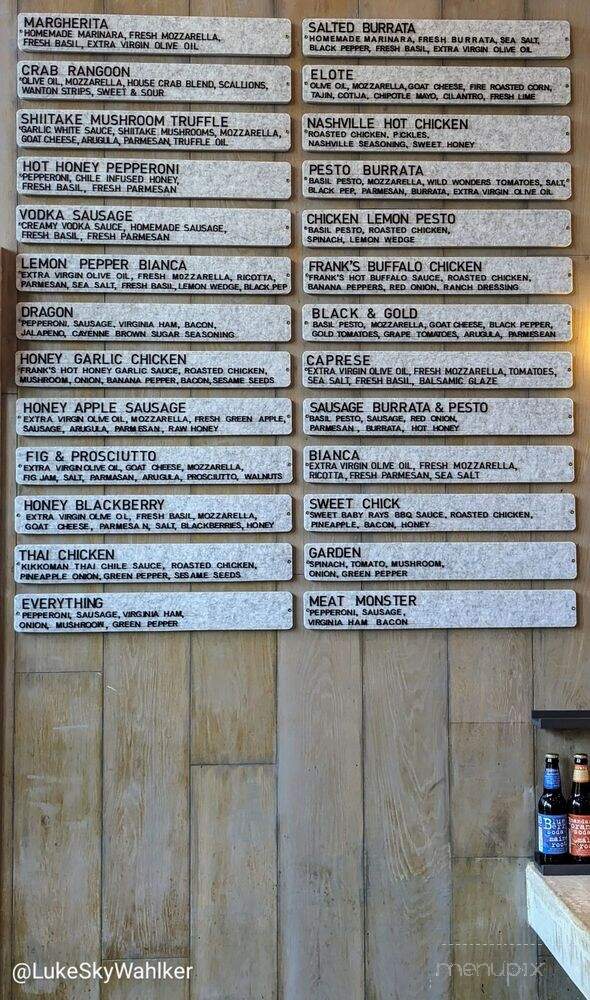 MARGHERITA
HOMEMADE MARINARA, FRESH MOZZARELLA,
FRESH BASIL, EXTRA VIRGIN OLIVE OIL
CRAB RANGOON
OLIVE OIL, MOZZARELLA, HOUSE CRAB BLEND, SCALLIONS,
WANTON STRIPS, SWEET & SOUR
SHIITAKE MUSHROOM TRUFFLE
GARLIC WHITE SAUCE, SHIITAKE MUSHROOMS, MOZZARELLA,
GOAT CHEESE, ARUGULA, PARMESAN, TRUFFLE OIL
HOT HONEY PEPPERONI
PEPPERONI, CHILE INFUSED HONEY,
FRESH BASIL, FRESH PARMESAN
VODKA SAUSAGE
CREAMY VODKA SAUCE, HOMEMADE SAUSAGE,
FRESH BASIL, FRESH PARMESAN
LEMON PEPPER BIANCA
EXTRA VIRGIN OLIVE OIL, FRESH MOZZARELLA, RICOTTA,
PARMESAN, SEA SALT, FRESH BASIL, LEMON WEDGE, BLACK PEP
DRAGON
PEPPERONI, SAUSAGE, VIRGINIA HAM, BACON,
JALAPENO, CAYENNE BROWN SUGAR SEASONING
HONEY GARLIC CHICKEN
FRANK'S HOT HONEY GARLIC SAUCE, ROASTED CHICKEN,
MUSHROOM, ONION, BANANA PEPPER, BACON, SESAME SEEDS
HONEY APPLE SAUSAGE
EXTRA VIRGIN OLIVE OIL, MOZZARELLA, FRESH GREEN APPLE,
SAUSAGE, ARUGULA, PARMESAN, RAW HONEY
FIG & PROSCIUTTO
EXTRA VIRGIN OLIVE OIL, GOAT CHEESE, MOZZARELLA,
FIG JAM, SALT, PARMASAN, ARUGULA, PROSCIUTTO, WALNUTS
HONEY BLACKBERRY
EXTRA VIRGIN OLIVE OIL, FRESH BASIL, MOZZARELLA,
GOAT CHEESE, PARMESAN, SALT, BLACKBERRIES, HONEY
THAI CHICKEN
KIKKOMAN THAI CHILE SAUCE, ROASTED CHICKEN,
PINEAPPLE ONION, GREEN PEPPER, SESAME SEEDS
EVERYTHING
PEPPERONI, SAUSAGE, VIRGINIA HAM,
ONION, MUSHROOM, GREEN PEPPER
SALTED BURRATA
HOMEMADE MARINARA, FRESH BURRATA, SEA SALT,
BLACK PEPPER, FRESH BASIL, EXTRA VIRGIN OLIVE OIL
ELOTE
OLIVE OIL, MOZZARELLA, GOAT CHEESE, FIRE ROASTED CORN,
TAJIN, COTIJA, CHIPOTLE MAYO, CILANTRO, FRESH LIME
NASHVILLE HOT CHICKEN
ROASTED CHICKEN, PICKLES,
NASHVILLE SEASONING, SWEET HONEY
PESTO BURRATA
BASIL PESTO, MOZZARELLA, WILD WONDERS TOMATOES, SALT,
BLACK PEP, PARMESAN, BURRATA, EXTRA VIRGIN OLIVE OIL
CHICKEN LEMON PESTO
BASIL PESTO, ROASTED CHICKEN,
SPINACH, LEMON WEDGE
FRANK'S BUFFALO CHICKEN
FRANK'S HOT BUFFALO SAUCE, ROASTED CHICKEN,
BANANA PEPPERS, RED ONION, RANCH DRESSING
BLACK & GOLD
BASIL PESTO, MOZZARELLA, GOAT CHEESE, BLACK PEPPER,
GOLD TOMATOES, GRAPE TOMATOES, ARUGULA, PARMESEAN
CAPRESE
EXTRA VIRGIN OLIVE OIL, FRESH MOZZARELLA, TOMATOES,
SEA SALT, FRESH BASIL, BALSAMIC GLAZE
SAUSAGE BURRATA & PESTO
BASIL PESTO, SAUSAGE, RED ONION,
PARMESAN, BURRATA, HOT HONEY
BIANCA
EXTRA VIRGIN OLIVE OIL, FRESH MOZZARELLA,
RICOTTA, FRESH PARMESAN, SEA SALT
SWEET CHICK
SWEET BABY RAYS BBQ SAUCE, ROASTED CHICKEN,
PINEAPPLE, BACON, HONEY
GARDEN
SPINACH, TOMATO, MUSHROOM,
ONION, GREEN PEPPER
MEAT MONSTER
PEPPERONI, SAUSAGE,
VIRGINIA HAM BACON
Blue
Berry
soda
main
root
soda
main
root
@LukeSkyWahlker
menupix